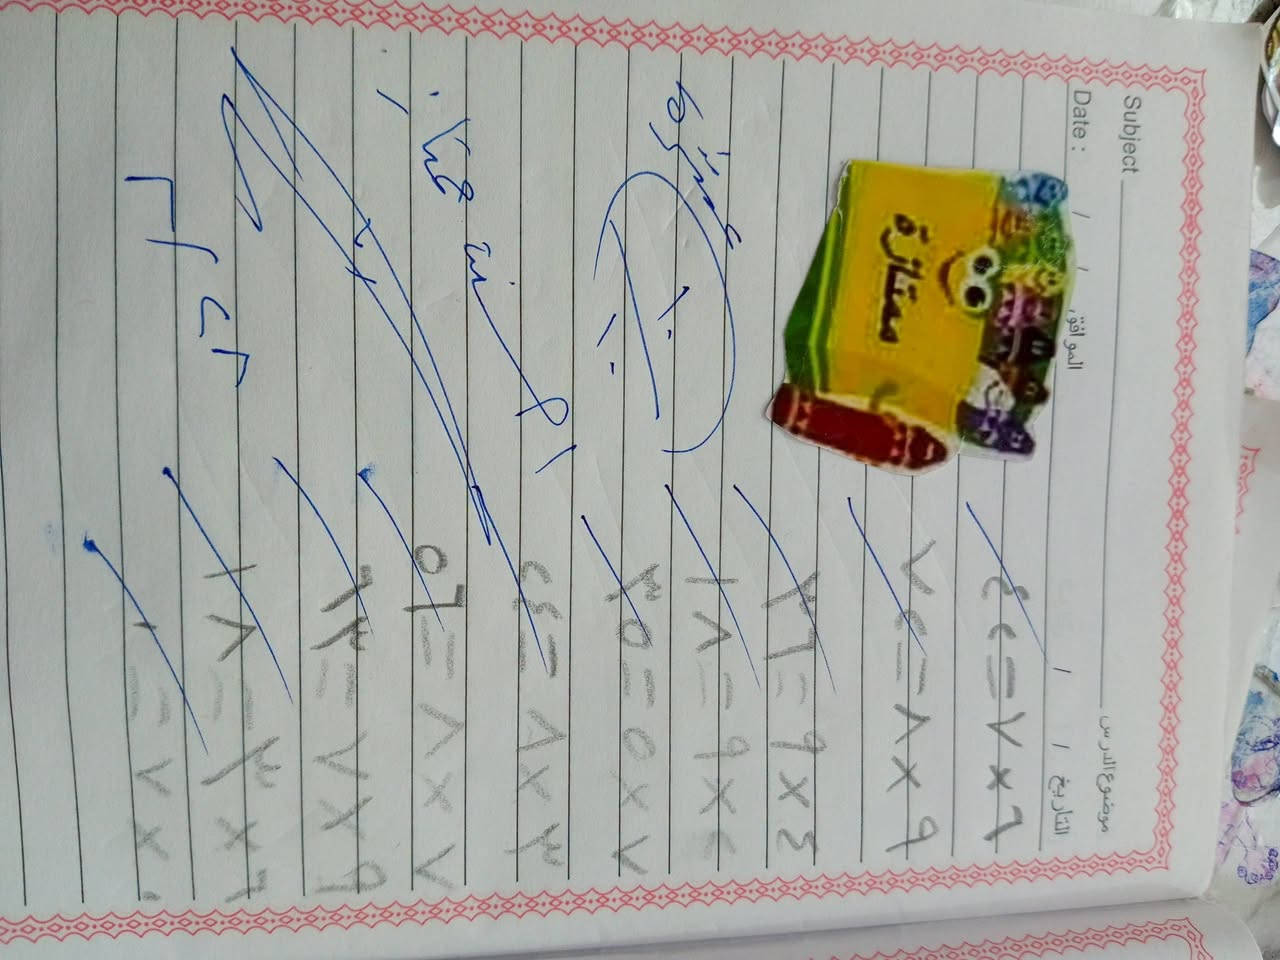 Subject موضوع الدرس
Date : / / الموافق / / التاريخ
٦ × ٧ = ٤٢
ممتازة
٩ × ٨ = ٧٢
٤ × ٩ = ٣٦
٢ × ٩ = ١٨
١٠
١٠
٧ × ٥ = ٣٥
٣ × ٨ = ٢٤
٧ × ٨ = ٥٦
٩ × ٧ = ٦٣
٦ × ٣ = ١٨
٠ × ٧ = ٠